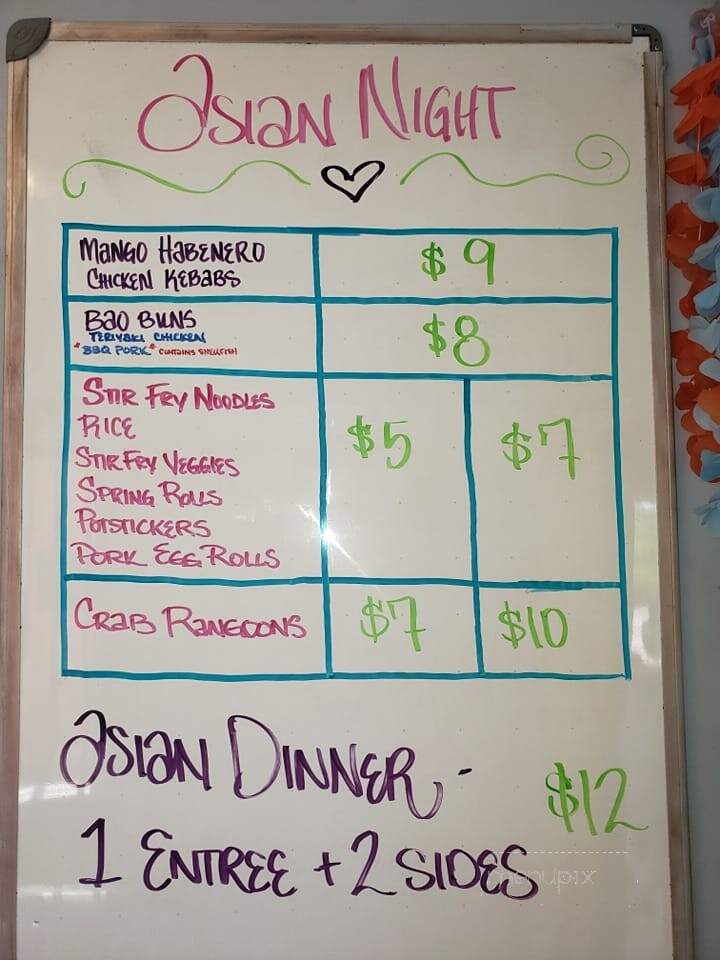 ASIAN NIGHT
MANGO HABENERO
CHICKEN KEBABS
$9
BAO BUNS
TERIYAKI CHICKEN
*BBQ PORK* CONTAINS SHELLFISH
$8
STIR FRY NOODLES
RICE
STIR FRY VEGGIES
SPRING ROLLS
POTSTICKERS
PORK EGG ROLLS
$5
$7
CRAB RANGOONS
$7
$10
ASIAN DINNER -
$12
1 ENTREE + 2 SIDES
menupix